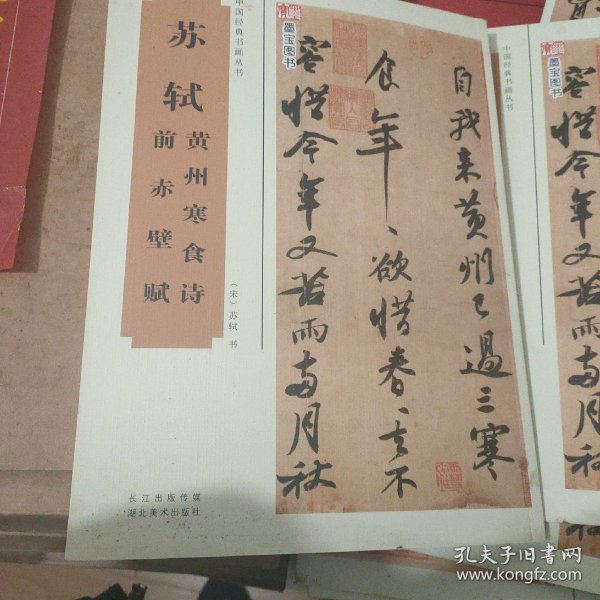 中国经典书画丛书
苏轼
黄州寒食诗
前赤壁赋
(宋)苏轼 书
长江出版传媒
湖北美术出版社
墨宝图书
自我来黄州已过三寒
食年、欲惜春、去不
容惜今年又苦雨两月秋
中国经典书画丛书
墨宝图书
容惜今年又苦雨两月
孔夫子旧书网
www.kongfz.com